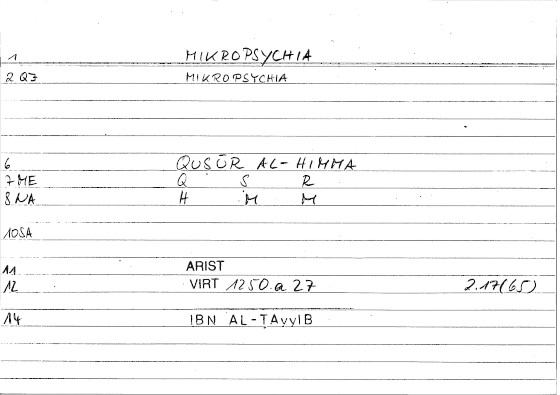 1 MIKROPSYCHIA
2 Q7 MIKROPSYCHIA
6 QUṢŪR AL-HIMMA
7 ME Q S R
8 NA H M M
10 SA
11 ARIST
12 VIRT 1250 a 27 2.17(65)
14 IBN AL-ṬAyyIB